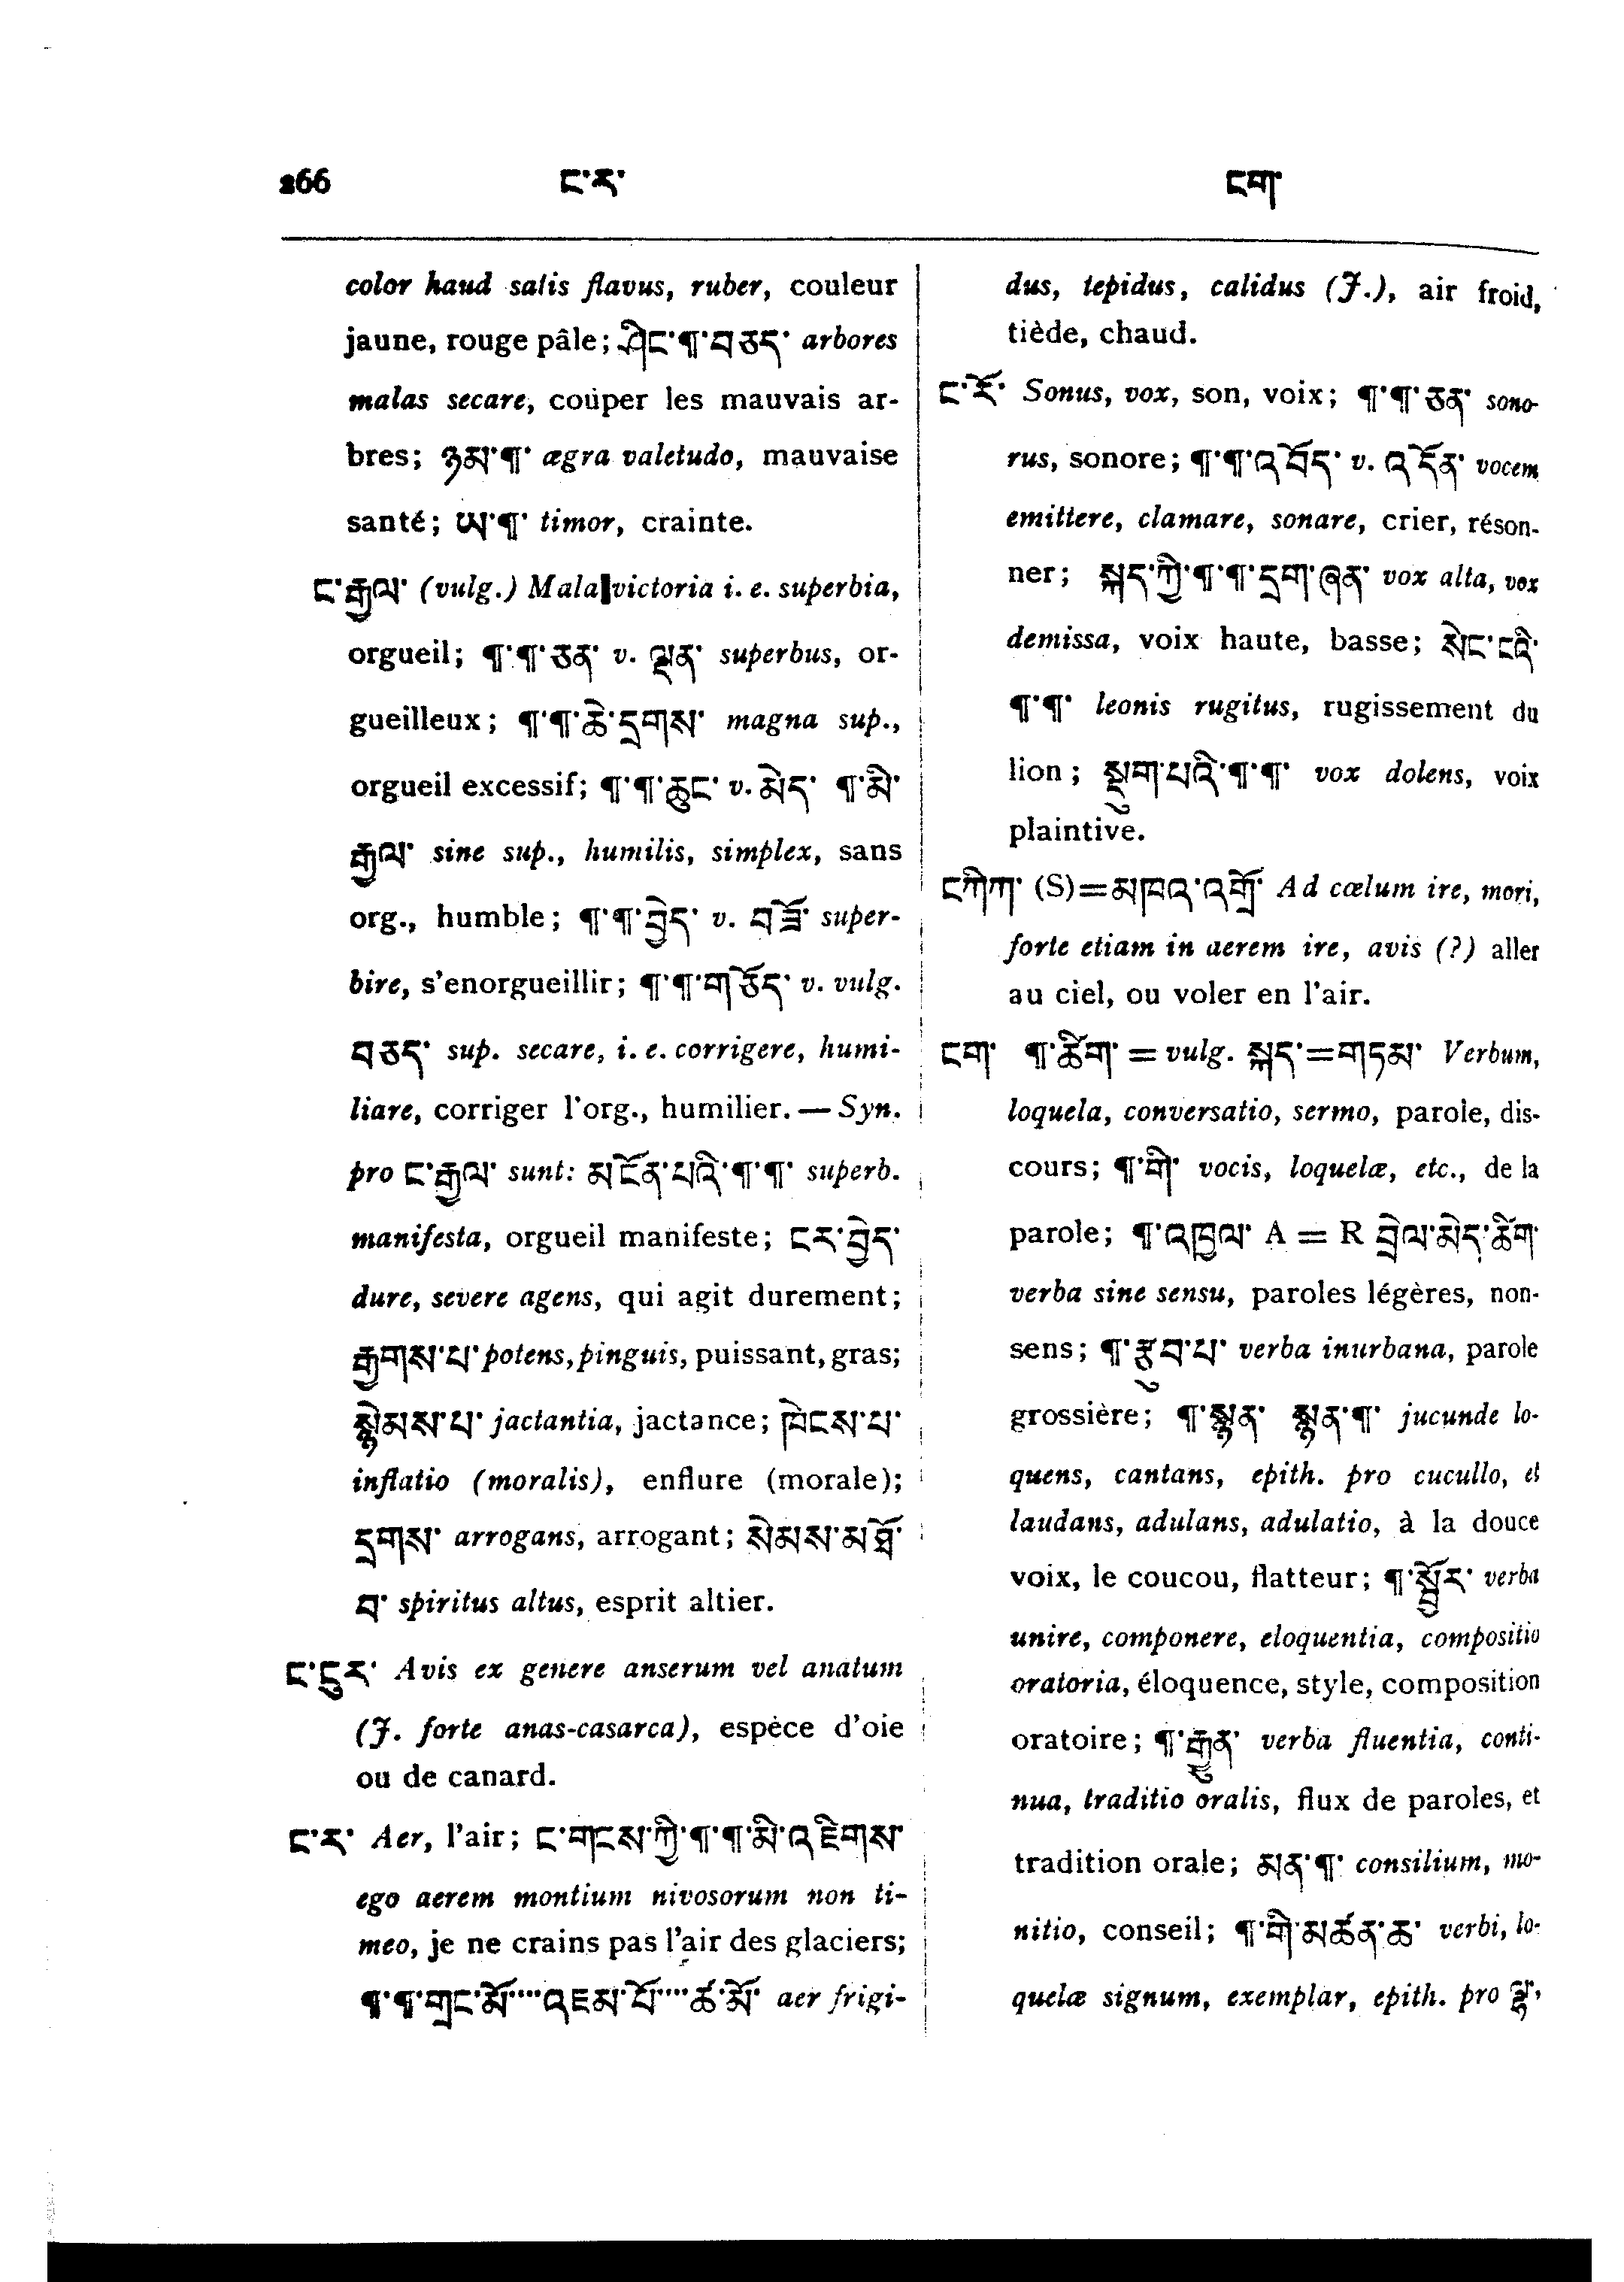 266 ང་ར་ ངག་
color haud satis flavus, ruber, couleur
jaune, rouge pâle; ཤིང་¶་བཅད་ arbores
malas secare, couper les mauvais ar-
bres; ཉམ་¶་ ægra valetudo, mauvaise
santé; ཡ་¶་ timor, crainte.
ང་རྒྱལ་ (vulg.) Mala victoria i. e. superbia,
orgueil; ¶་¶་ཅན་ v. ལྡན་ superbus, or-
gueilleux; ¶་¶་ཆེ་དྲགས་ magna sup.,
orgueil excessif; ¶་¶་ཆུང་ v. མེད་ ¶་མི་
རྒྱལ་ sine sup., humilis, simplex, sans
org., humble; ¶་¶་བྱེད་ v. བཟོ་ super-
bire, s'enorgueillir; ¶་¶་གཅོད་ v. vulg.
བཅད་ sup. secare, i. e. corrigere, humi-
liare, corriger l'org., humilier. — Syn.
pro ང་རྒྱལ་ sunt: མངོན་པའི་¶་¶་ superb.
manifesta, orgueil manifeste; ངར་བྱེད་
dure, severe agens, qui agit durement;
རྒྱགས་པ་ potens, pinguis, puissant, gras;
སྙེམས་པ་ jactantia, jactance; ཁེངས་པ་
inflatio (moralis), enflure (morale);
དྲགས་ arrogans, arrogant; སེམས་མཐོ་
བ་ spiritus altus, esprit altier.
ང་ངུར་ Avis ex genere anserum vel anatum
(J. forte anas-casarca), espèce d'oie
ou de canard.
ང་ར་ Aer, l'air; ང་གངས་ཀྱི་¶་¶་མི་འཇིགས་
ego aerem montium nivosorum non ti-
meo, je ne crains pas l'air des glaciers;
¶་¶་གྲང་མོ་····འཇམ་པོ་····ཚ་མོ་ aer frigi-
dus, tepidus, calidus (J.), air froid,
tiède, chaud.
ང་རོ་ Sonus, vox, son, voix; ¶་¶་ཅན་ sono-
rus, sonore; ¶་¶་འབོད་ v. འདོན་ vocem
emittere, clamare, sonare, crier, réson-
ner; སྐད་ཀྱི་¶་¶་དྲག་ཞན་ vox alta, vox
demissa, voix haute, basse; སེང་ངའི་
¶་¶་ leonis rugitus, rugissement du
lion; སྡུག་པའི་¶་¶་ vox dolens, voix
plaintive.
ངཀིཀ་ (S)=མཁའ་འགྲོ་ Ad cœlum ire, mori,
forte etiam in aerem ire, avis (?) aller
au ciel, ou voler en l'air.
ངག་ ¶་ཚིག་ = vulg. སྐད་=གཏམ་ Verbum,
loquela, conversatio, sermo, parole, dis-
cours; ¶་གི་ vocis, loquelæ, etc., de la
parole; ¶་འཁྱལ་ A = R བྲེལ་མེད་ཚིག་
verba sine sensu, paroles légères, non-
sens; ¶་རྩུབ་པ་ verba inurbana, parole
grossière; ¶་སྙན་ སྙན་¶་ jucunde lo-
quens, cantans, epith. pro cucullo, et
laudans, adulans, adulatio, à la douce
voix, le coucou, flatteur; ¶་སྦྱོར་ verba
unire, componere, eloquentia, compositio
oratoria, éloquence, style, composition
oratoire; ¶་རྒྱུན་ verba fluentia, conti-
nua, traditio oralis, flux de paroles, et
tradition orale; མན་¶་ consilium, mo-
nitio, conseil; ¶་གི་མཚན་ཆ་ verbi, lo-
quelæ signum, exemplar, epith. pro